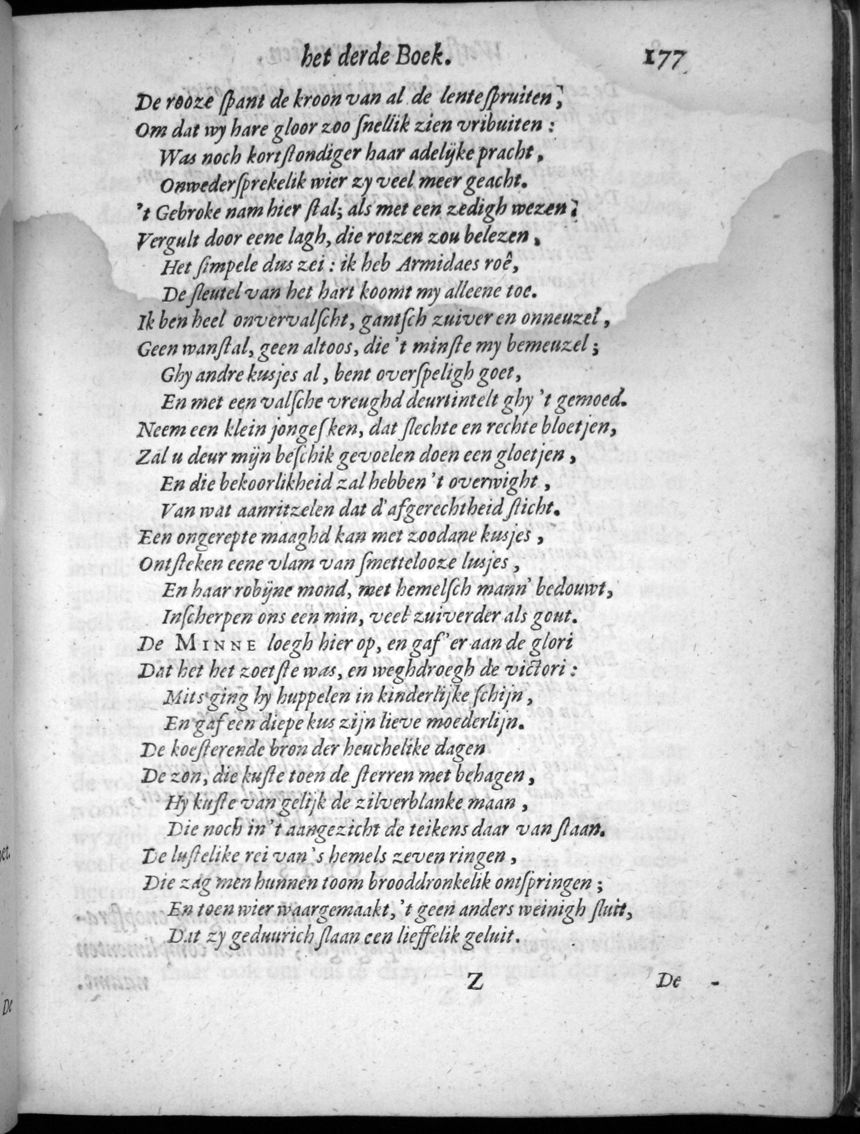 het derde Boek. 177
De rooze spant de kroon van al de lentespruiten,
Om dat wy hare gloor zoo snellik zien vribuiten:
Was noch kortstondiger haar adelijke pracht,
Onwedersprekelik wier zy veel meer geacht.
't Gebroke nam hier stal; als met een zedigh wezen;
Vergult door eene lagh, die rotzen zou belezen,
Het simpele dus zei: ik heb Armidaes roê,
De sleutel van het hart koomt my alleene toe.
Ik ben heel onvervalscht, gantsch zuiver en onneuzel,
Geen wanstal, geen altoos, die 't minste my bemeuzel;
Ghy andre kusjes al, bent overspeligh goet,
En met een valsche vreughd deurtintelt ghy 't gemoed.
Neem een klein jongesken, dat slechte en rechte bloetjen,
Zal u deur mijn beschik gevoelen doen een gloetjen,
En die bekoorlikheid zal hebben 't overwight,
Van wat aanritzelen dat d'afgerechtheid sticht.
Een ongerepte maaghd kan met zoodane kusjes,
Ontsteken eene vlam van smettelooze lusjes,
En haar robijne mond, met hemelsch mann' bedouwt,
Inscherpen ons een min, veel zuiverder als gout.
De MINNE loegh hier op, en gaf'er aan de glori
Dat het het zoetste was, en weghdroegh de victori:
Mits ging hy huppelen in kinderlijke schijn,
En gaf een diepe kus zijn lieve moederlijn.
De koesterende bron der heuchelike dagen
De zon, die kuste toen de sterren met behagen,
Hy kuste van gelijk de zilverblanke maan,
Die noch in't aangezicht de teikens daar van staan.
De lustelike rei van 's hemels zeven ringen,
Die zag men hunnen toom brooddronkelik ontspringen;
En toen wier waargemaakt, 't geen anders weinigh sluit,
Dat zy geduurich slaan een lieffelik geluit.
Z De